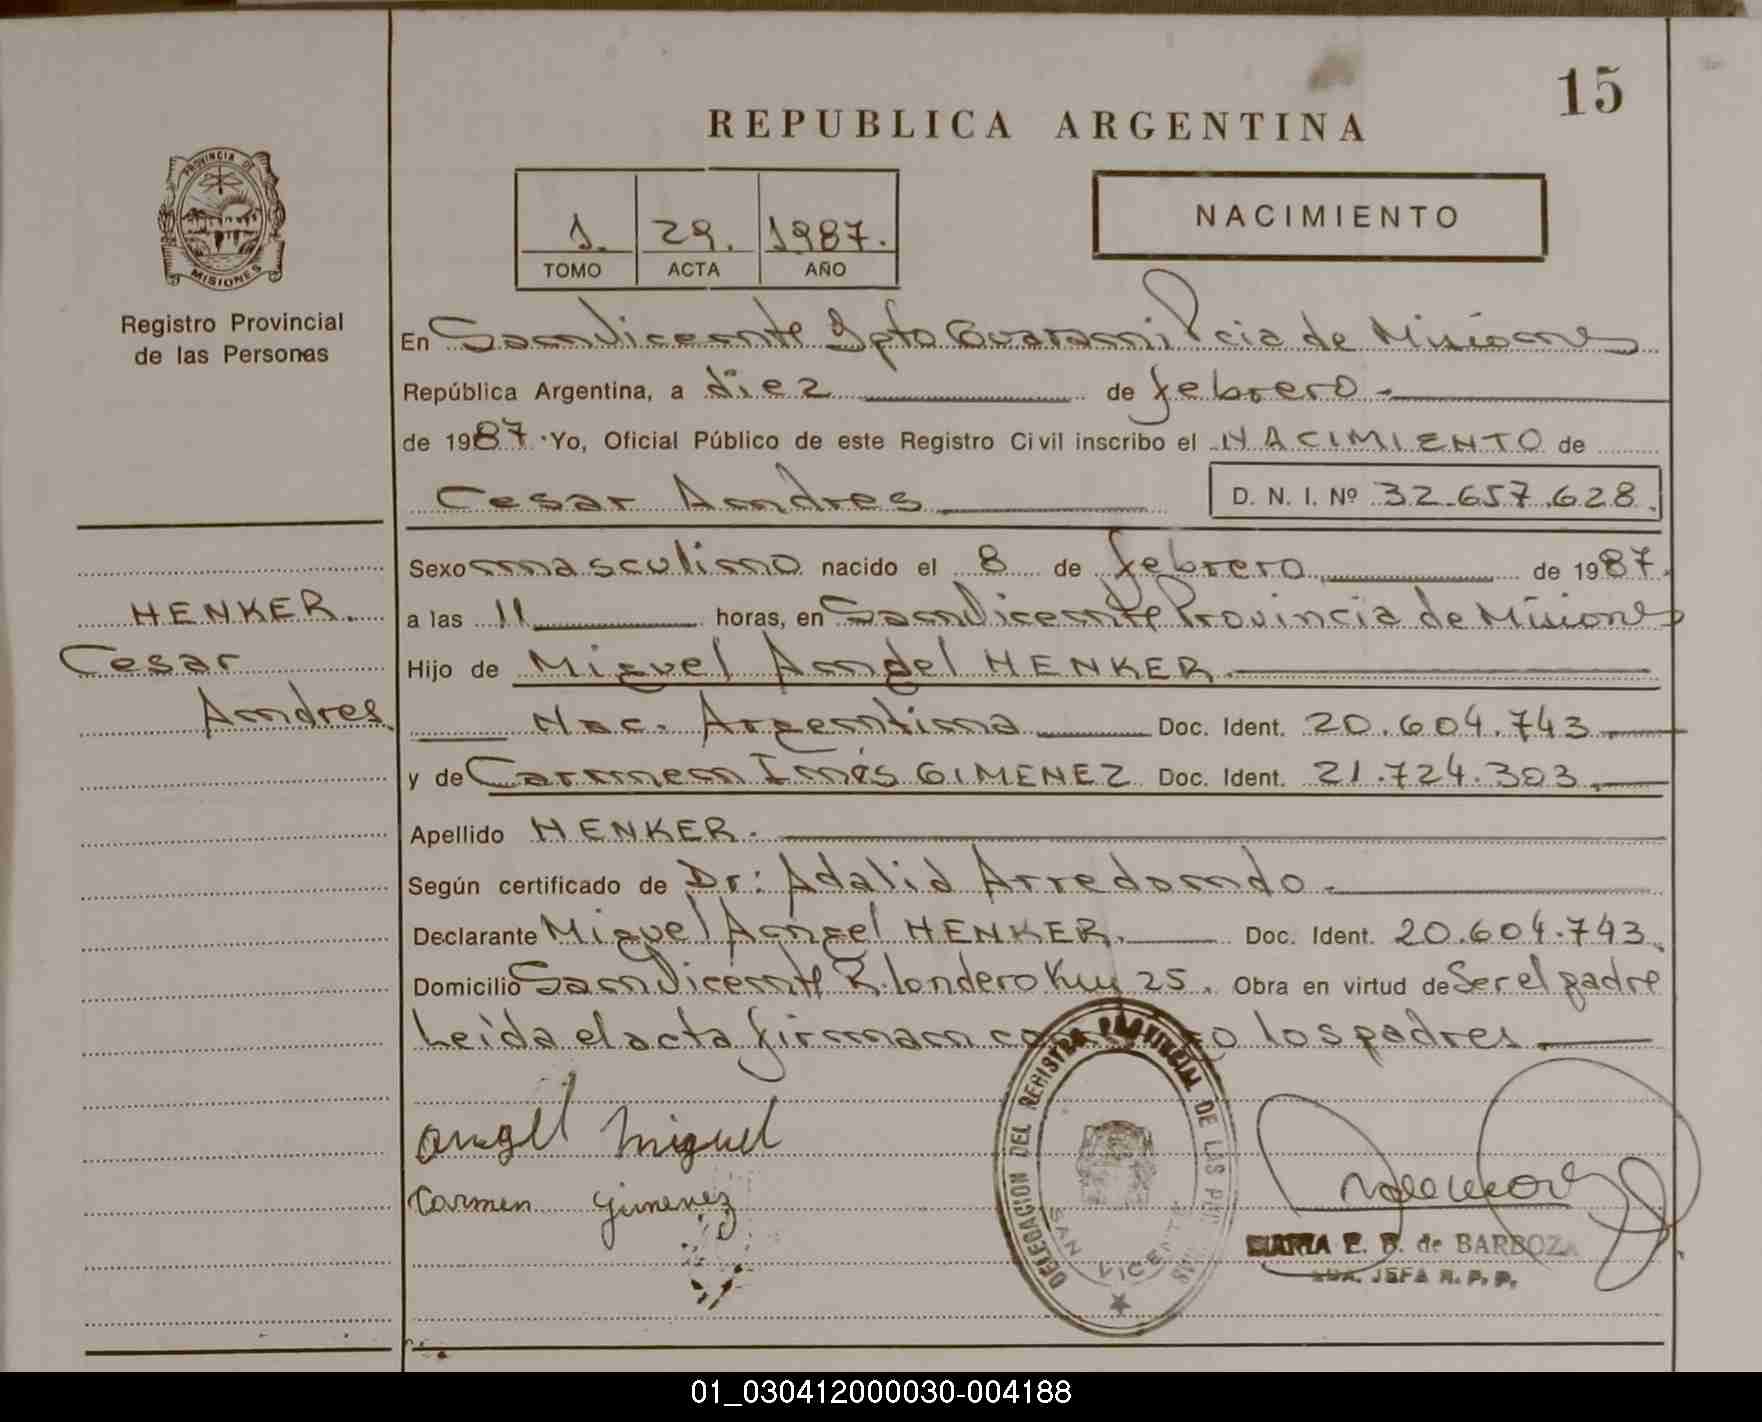 15
REPUBLICA ARGENTINA
PROVINCIA DE
MISIONES
Registro Provincial
de las Personas
1. 29. 1987.
TOMO ACTA AÑO
NACIMIENTO
En San Vicente Dpto Guarani Pcia de Misiones
República Argentina, a diez de febrero
de 1987. Yo, Oficial Público de este Registro Civil inscribo el NACIMIENTO de
Cesar Andres D. N. I. Nº 32.657.628.
Sexo masculino nacido el 8 de febrero de 1987.
HENKER.
Cesar
Andres
a las 11 horas, en San Vicente Provincia de Misiones
Hijo de Miguel Angel HENKER.
Nac. Argentina Doc. Ident. 20.604.743
y de Carmen Inés GIMENEZ Doc. Ident. 21.724.303.
Apellido HENKER.
Según certificado de Dr: Adalid Arredondo.
Declarante Miguel Angel HENKER. Doc. Ident. 20.604.743.
Domicilio San Vicente R. londero Km 25. Obra en virtud de Ser el padre
Leída el acta firman conmigo los padres
angel miguel
Carmen gimenez
DELEGACION DEL REGISTRO PROVINCIAL DE LAS PERSONAS
SAN VICENTE
MARIA E. B. de BARBOZA
JEFA R. P. P.
01_030412000030-004188